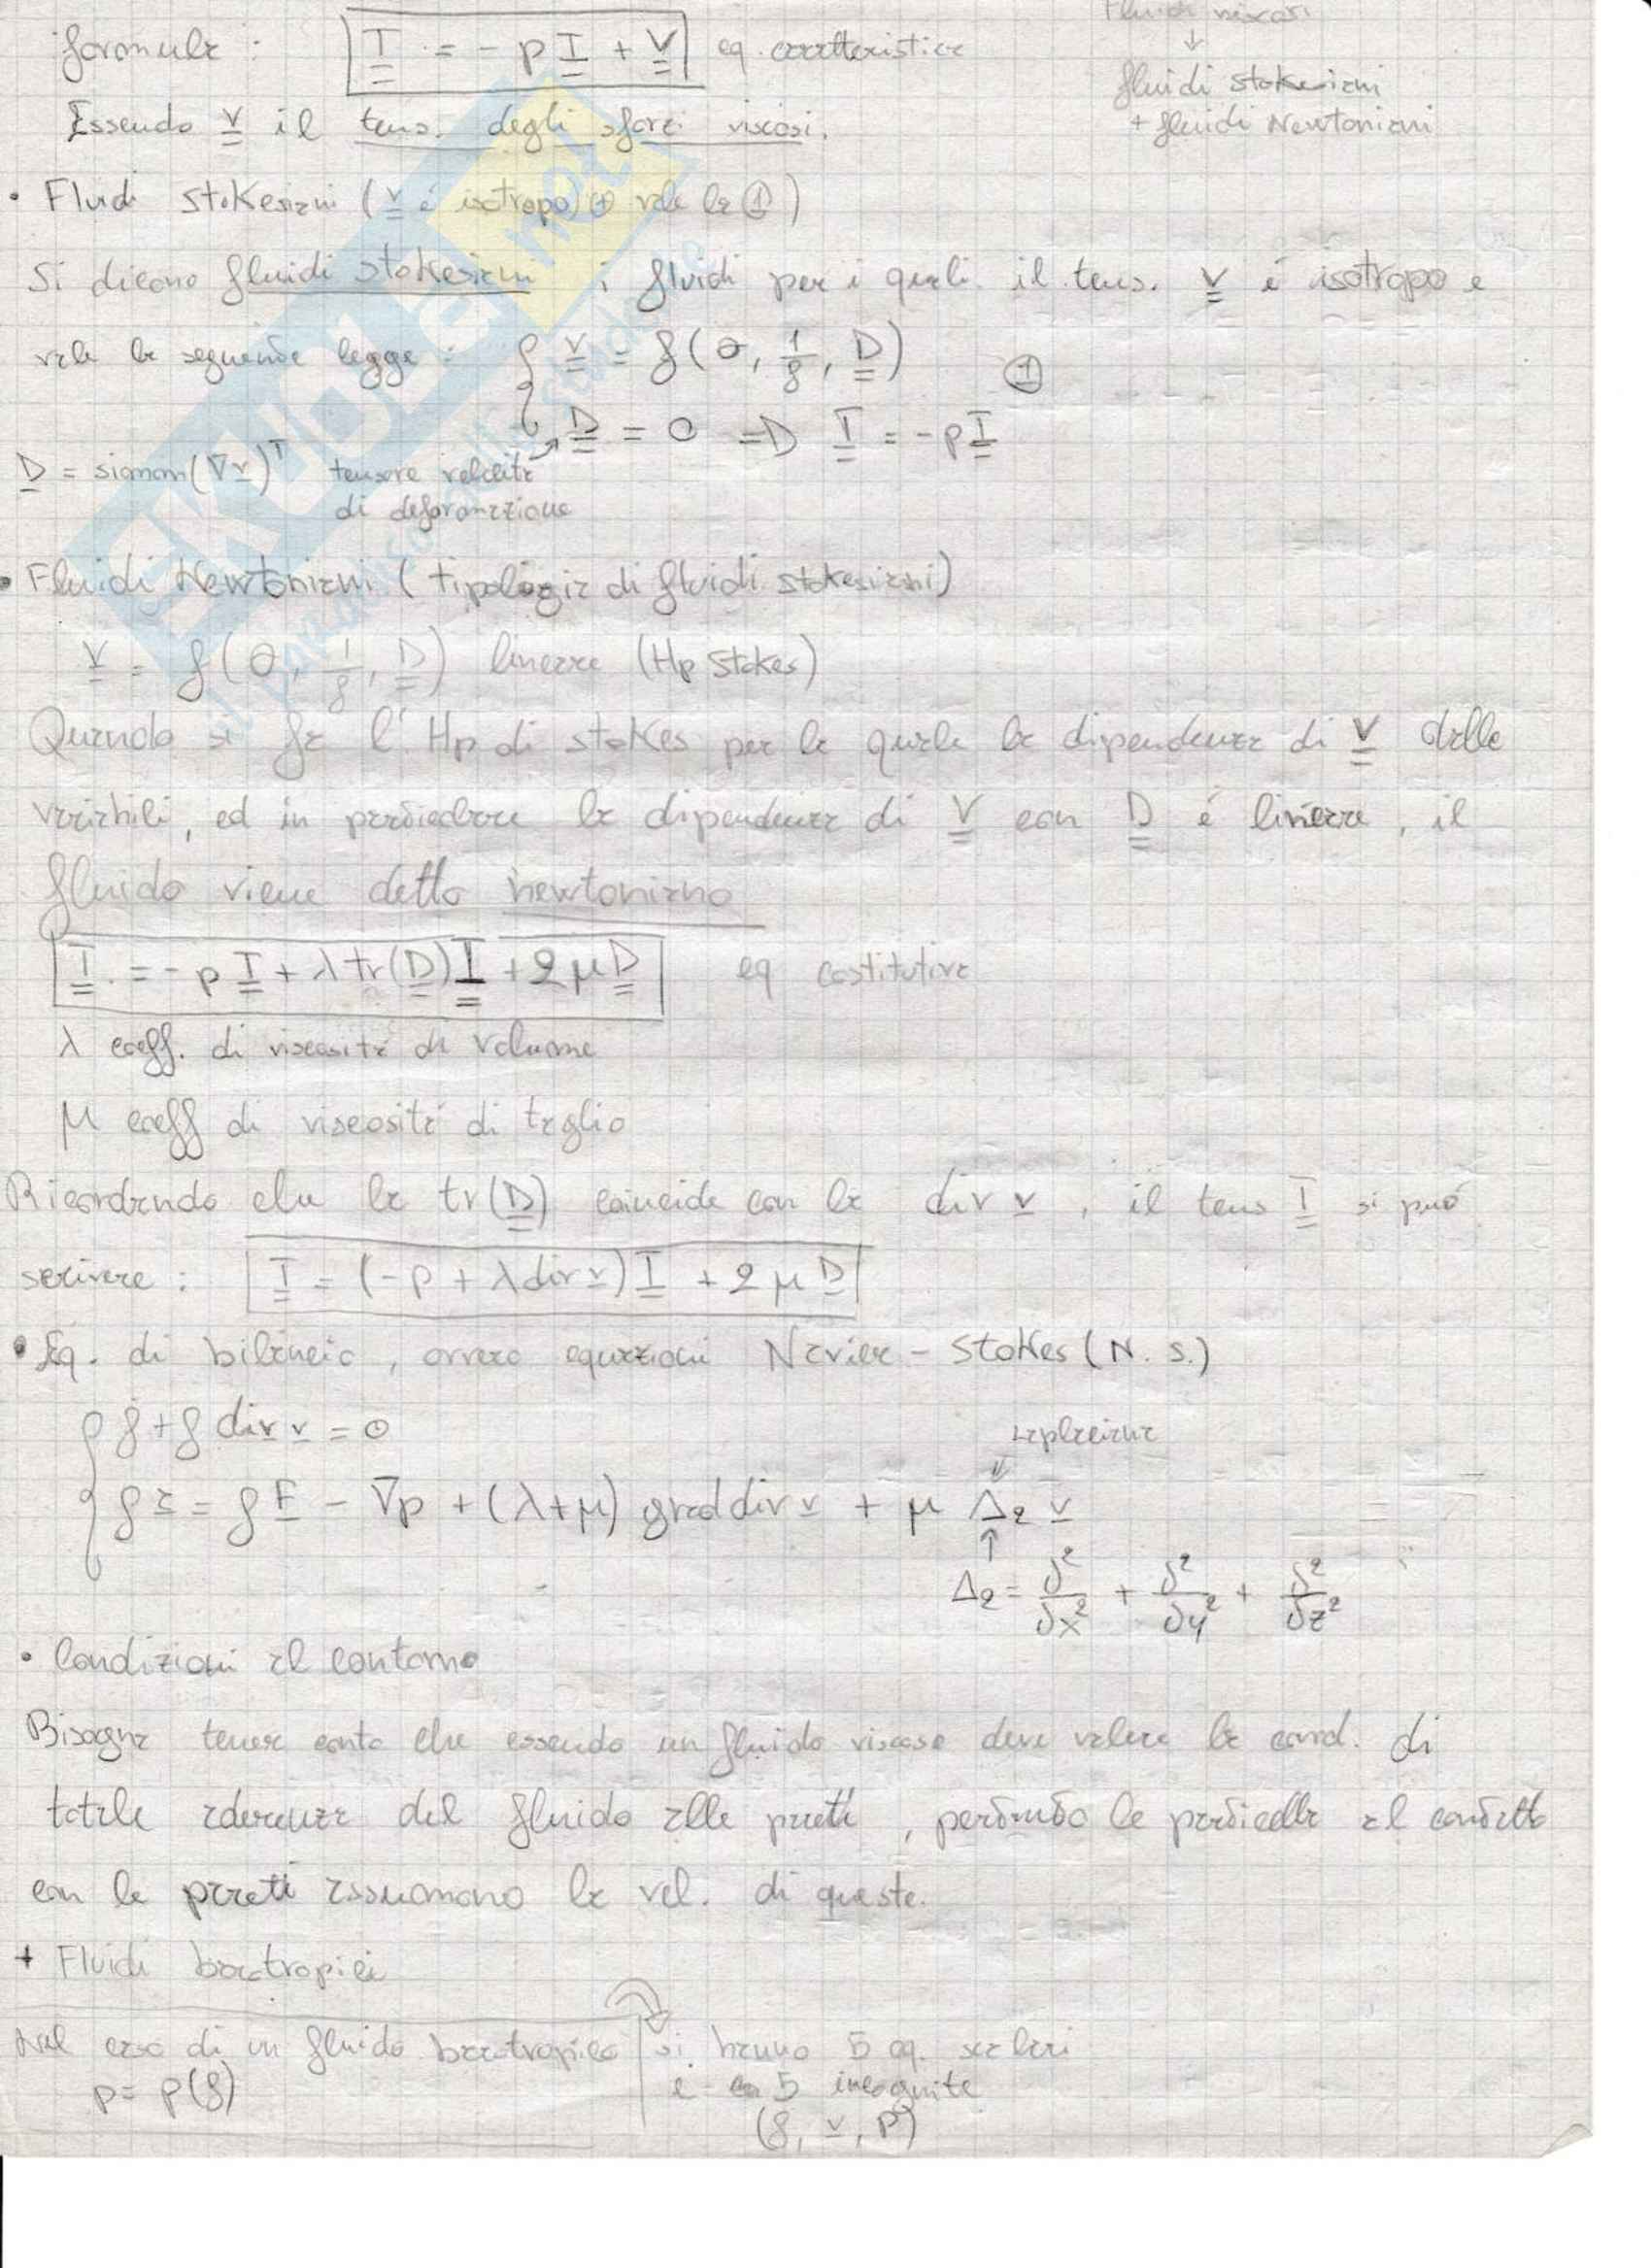 Fluidi viscosi
↓
fluidi stokesiani
+ fluidi Newtoniani
formula : T = - p I + V eq. caratteristica
Essendo V il tens. degli sforzi viscosi.
• Fluidi stokesiani ( V é isotropo ⊕ vale la ① )
Si dicono fluidi stokesiani i fluidi per i quali il tens. V é isotropo e
vale la seguente legge : { V = f(θ, 1/ρ, D) ①
D = 0 => T = - p I
D = simm(∇v)ᵀ tensore velocità
di deformazione
• Fluidi Newtoniani ( tipologia di fluidi stokesiani)
V = f(θ, 1/ρ, D) lineare (Hp Stokes)
Quando si fa l'Hp di stokes per la quale la dipendenza di V dalle
variabili, ed in particolare la dipendenza di V con D é lineare, il
fluido viene detto newtoniano
T = - p I + λ tr(D) I + 2 μ D eq costitutiva
λ coeff. di viscosità di volume
μ coeff di viscosità di taglio
Ricordando che la tr(D) coincide con la div v , il tens T si può
scrivere : T = (- p + λ div v) I + 2 μ D
• Eq. di bilancio , ovvero equazioni Navier - Stokes ( N. S.)
{ ρ̇ + ρ div v = 0
laplaciana
ρ a = ρ F - ∇p + (λ+μ) grad div v + μ Δ₂ v
Δ₂ = ∂²/∂x² + ∂²/∂y² + ∂²/∂z²
• Condizioni al contorno
Bisogna tener conto che essendo un fluido viscoso deve valere la cond. di
totale aderenza del fluido alle pareti , pertanto le particelle al contatto
con le pareti assumono la vel. di queste.
+ Fluidi barotropici
Nel caso di un fluido barotropico si hanno 5 eq. scalari
p = p(ρ) e 5 incognite
(ρ, v, p)